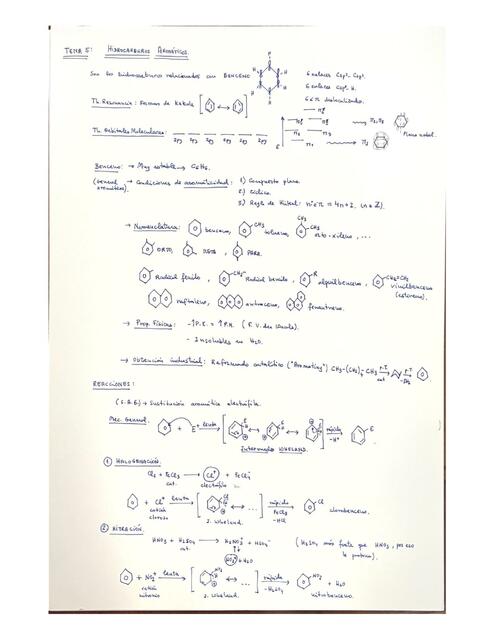 TEMA 5: HIDROCARBUROS AROMÁTICOS.
Son los hidrocarburos relacionados con BENCENO
6 enlaces Csp²-Csp².
6 enlaces Csp²-H.
6 e⁻ π deslocalizados.
Th. Resonancia: Formas de Kekulé
Th. Orbitales Moleculares:
Plano nodal.
Benceno: → Muy estable → C₆H₆.
(General aromáticos). → Condiciones de aromaticidad: 1) Compuesto plano.
2) Cíclico.
3) Regla de Hückel: nº e⁻ π = 4n+2. (n ∈ Z).
→ Nomenclatura: benceno, CH₃ tolueno, CH₃ CH₃ orto-xileno, ...
ORTO, META, PARA.
Radical fenilo, CH₂⁻ Radical bencilo, R alquilbenceno, CH=CH₂ vinilbenceno
(estireno).
naftaleno, antraceno, fenantreno.
→ Prop. Físicas: - ↑P.E. = ↑P.M. (F. V. der Waals).
- Insolubles en H₂O.
→ Obtención industrial: Reformado catalítico ("Aromating") CH₃-(CH₂)₄-CH₃ P.T. cat
REACCIONES:
(S.E.A) → Sustitución aromática electrófila.
Mec. General. + E⁺ lenta E H rápida -H⁺ E
Intermedio WHELAND.
① HALOGENACIÓN.
Cl₂ + FeCl₃ → Cl⁺ + FeCl₄⁻
cat. electrófilo
+ Cl⁺ lenta Cl H ... rápida FeCl₄⁻ -HCl Cl
catión cloroso I. Wheland. clorobenceno.
② NITRACIÓN.
HNO₃ + H₂SO₄ → H₂NO₃⁺ + HSO₄⁻ (H₂SO₄ más fuerte que HNO₃, por eso
cat. lo protona).
NO₂⁺ + H₂O.
+ NO₂⁺ lenta NO₂ H ... rápida -H₂SO₄ NO₂ + H₂O
catión nitronio I. Wheland. nitrobenceno.